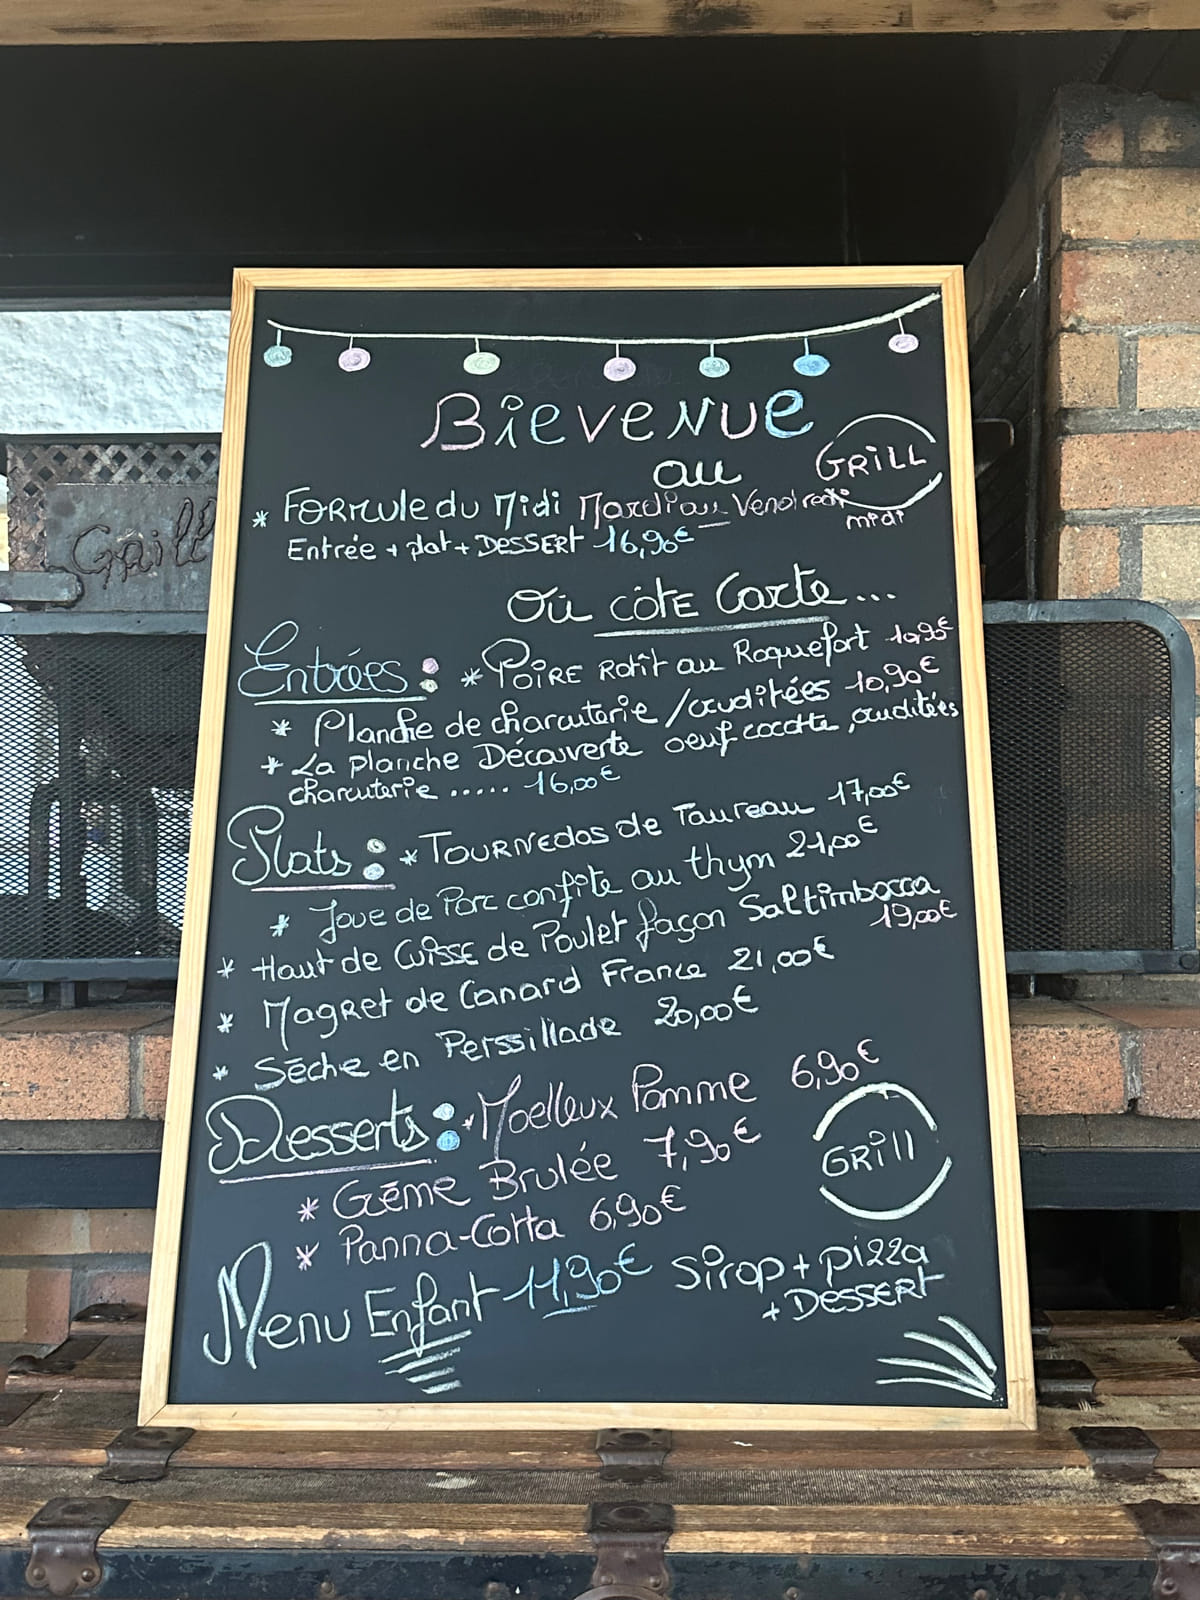 BievenUe
au GRiLL
* FORMule du Midi Mardi au Vendredi midi
Entrée + plat + DESSERt 16,90€
Où côtE Carte...
Entrées : * POiRE Rotît au Roquefort 10,90€
* Planche de charcuterie / crudités 10,90€
* La planche Découverte oeuf cocotte, crudités
charcuterie ..... 16,00€
Plats : * TOURNEDOS de Taureau 17,00€
* Joue de Porc confite au thym 21,00€
* Haut de CuiSSE de Poulet façon Saltimbocca
19,00€
* Magret de Canard France 21,00€
* Sèche en Perssillade 20,00€
Desserts : * Moelleux Pomme 6,90€
* Crème Brulée 7,90€
* Panna-Cotta 6,90€
GRill
Menu Enfant 11,90€ Sirop + pizza
+ DESSERT
Grill